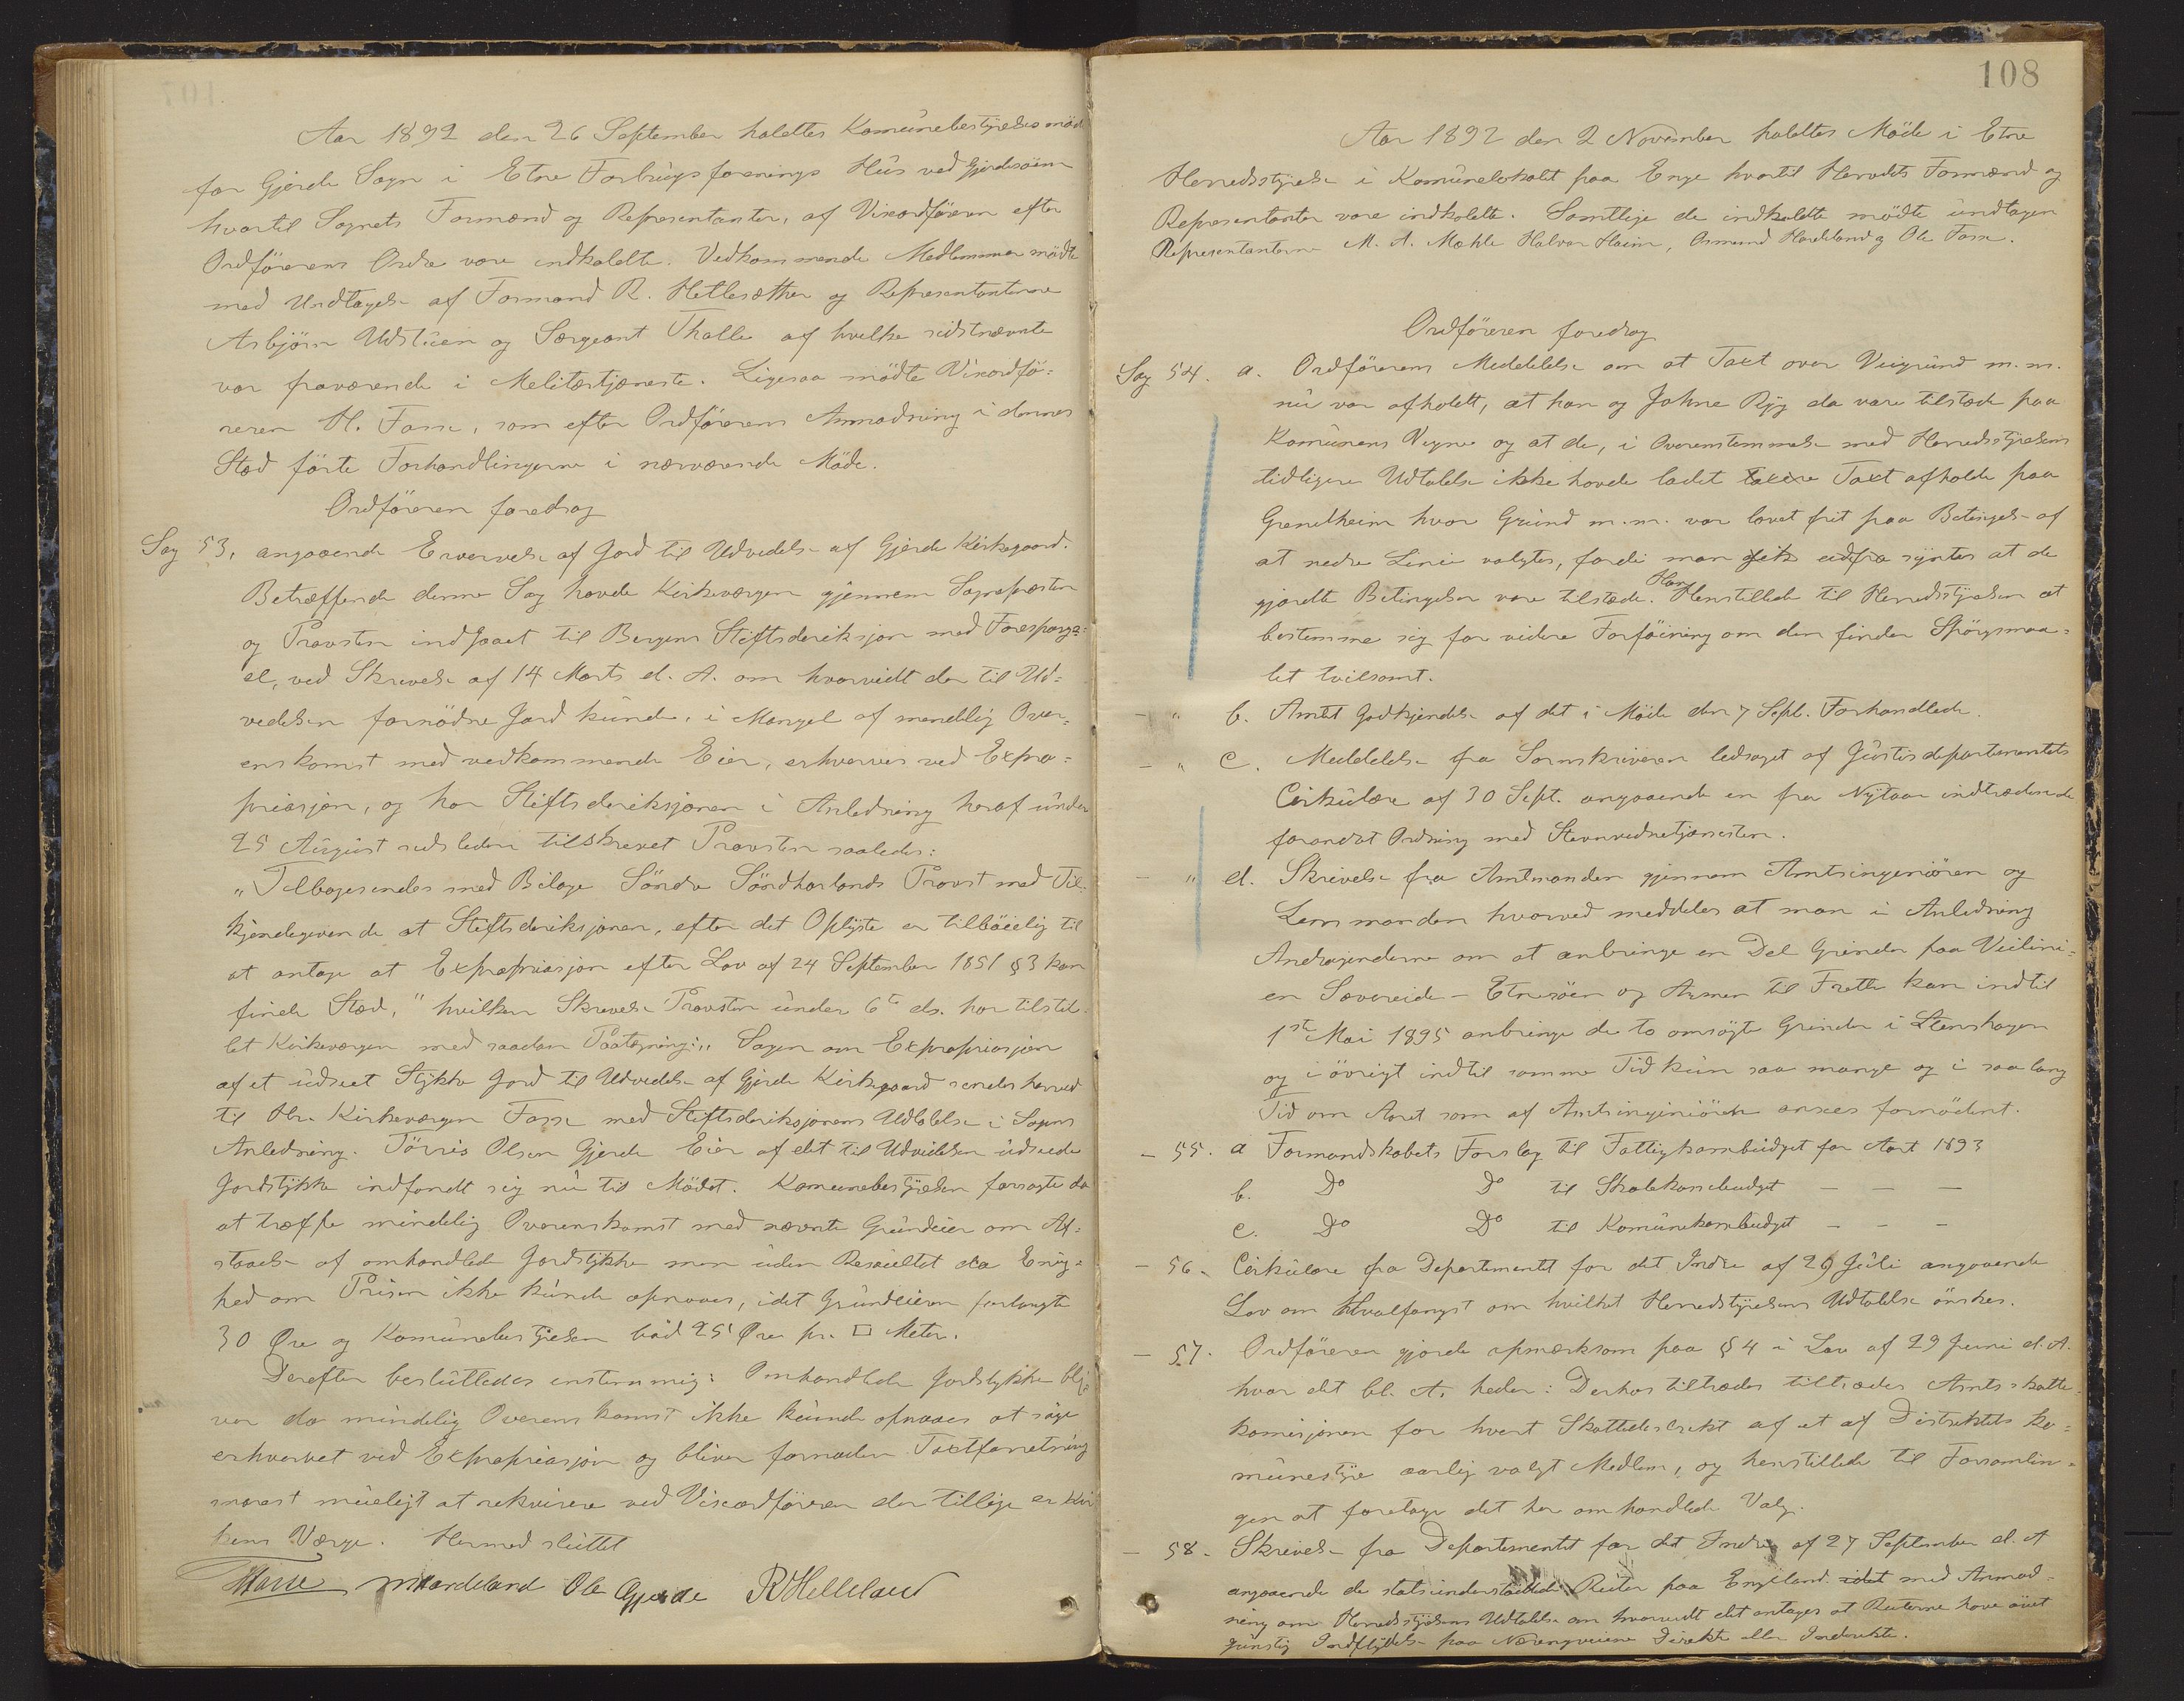 Aar 1892 den 26 September holdtes Komünebestyrelsesmöde
for Gjerde Sogn i Etne Forbrugsforenings Hüs ved Gjerdesöen
hvortil Sognets Formænd og Repræsentanter, af Viseordföreren efter
Ordförerens Ordre vare indkaldte. Vedkommende Medlemmer mödte
med Undtagelse af Formand R. Hetlesæther og Repræsentanterne
Asbjörn Udstüen og Sergeant Thalle af hvilke sidstnævnte
var fraværende i Melitærtjeneste. Ligesaa mödte Viseordfö-
reren H. Fosse, som efter Ordförerens Anmodning i dennes
Sted förte Forhandlingerne i nærværende Möde.
Ordföreren foredrog
Sag 53, angaaende Erververlse af Jord til Udvidelse af Gjerde Kirkegaard.
Betræffende denne Sag havde Kirkeværgen gjennem Sognepræsten
og Provsten indgaaet til Bergens Stiftsdireksjon med Foresporgs-
el, ved Skrivelse af 14 Marts d. A. om hvorvidt der til Ud-
videlsen fornödne Jord kunde, i Mangel af mindelig Over-
enskomst med vedkommende Eier, erhverves ved Expro-
priasjon, og har Stiftsdireksjonen i Anledning heraf ünder
25 Aügüst sidstleden tilskrevet Provsten saaledes:
"Tilbagesendes med Bilage Söndre Söndhorlands Provst med Til-
kjendegivende at Stiftsdireksjonen, efter det Oplyste er tilböielig til
at antage at Expropriasjon efter Lov af 24 September 1851 § 3 kan
finde Sted," hvilken Skrivelse Provsten ünder 6te ds. har tilstil-
let Kirkeværgen med saadan Paategning: "Sagen om Expropriasjon
af et üdseet Stykke Jord til Udvidelse af Gjerde Kirkegaard sendes herved
til Hr. Kirkeværgen Fosse med Stiftsdireksjonens Udtalelse i Sagens
Anledning. Törris Olsen Gjerde Eier af det til Udvidelsen üdseede
Jordstykke indfandt sig nü til Mödet. Komunebestyrelsen forsøgte da
at træffe mindelig Overenskomst med nævnte Gründeier om Af-
staaelse af omhandlede Jordstykke men uden Resültat da Enig-
hed om Prisen ikke künde opnaaes, idet Gründeieren forlangte
30 Øre og Komünebestyrelsen böd 25 Øre pr. □ Meter.
Derefter beslüttedes enstemmig: Omhandlede Jordstykke bli-
ver da mindelig Overenskomst ikke künde opnaaes at söge
erhvervet ved Expropriasjon og bliver fornøden Taxtforretning
snarest müeligt at rekvirere ved Viseordföreren der tillige er Kir
kens Værge. Hermed slüttet
HFosse MHardeland Ole Gjerde RHelleland
108
Aar 1892 den 2 November holdtes Möde i Etne
Herredsstyrelse i Komünelokalet paa Enge hvortil Herredets Formænd og
Repræsentanter vare indkaldte. Samtlige de indkaldte mödte ündtagen
Repræsentanterne M. A. Mæhle Halvor Haim, Osmund Hardeland og Ole Fosse.
Ordföreren foredrog
Sag 54. a. Ordförerens Meddelelse om at Taxt over Veigründ m. m.
nü var afholdt, at han og Johne Ryg da vare tilstede paa
Komünens Vegne og at de, i Overenstemmelse med Herredsstyrelsens
tidligere Udtalelse ikke havde ladet Taxt afholde paa
Grendheim hvor Gründ m. m. var lovet frit paa Betingelse af
at nedre Linie valgtes, fordi man syntes at de
gjordte Betingelser vare tilstede. Han Henstillede til Herredsstyrelsen at
bestemme sig for videre Forföining om den finder Spörgsmaa-
let tvilsomt.
- " b. Amtets Godkjendelse af det i Möde den 7 Sept. Forhandlede.
- " c. Meddelelse fra Sorenskriveren ledsaget af Jüstisdepartementets
Cirkülære af 30 Sept. angaaende en fra Nytaar indtrædende
forandret Ordning med Stevnevidnetjenesten.
- " d. Skrivelse fra Amtmanden gjennem Amtsingeniören og
Lensmanden hvorved meddeles at man i Anledning
Andragenderne om at anbringe en Del Grinder paa Veilini-
en Sævereide - Etnesöen og Armen til Frette kan indtil
1ste Mai 1895 anbringe de to omsögte Grinder i Stenshagen
og i övrigt indtil samme Tid kün saa mange og i saa lang
Tid om Aaret som af Amtsingeniören ansees fornödent.
- 55. a Formandskabets Forslag til Fattigkassebüdget for Aaret 1893
b. Do Do til Skolekassebudget - - -
c. Do Do til Komünekassebudget - - -
- 56. Cirkülære fra Departementet for det Indre af 29 Jüli angaaende
Lov om Hvalfangst om hvilket Herredstyrelsens Udtalelse önskes.
- 57. Ordföreren gjorde opmærksom paa § 4 i Lov af 29 Juni d. A.
hvor det bl. A. heder: Derhos tiltræder tiltræder Amtsskatte-
komisjonen for hvert Skattedistrikt af et af Distriktets Ko-
münestyre aarlig valgt Medlem, og henstillede til Forsamlin-
gen at foretage det her omhandlede Valg.
- 58. Skrivelse fra Departementet for det Indre af 27 September d. A
angaaende de statsünderstöttede Rüter paa England. idet med Anmod-
ning om Herredsstyrelsens Udtalelse om hvorvidt det antages at Rüterne have övet
günstig Indflydelse paa Næringsveiene Direkte eller Indirekte.